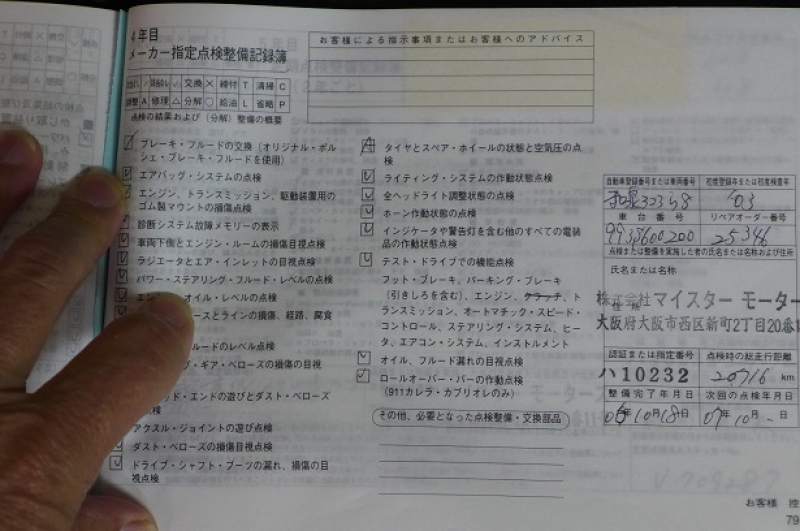 4年目
メーカー指定点検整備記録簿
お客様による指示事項またはお客様へのアドバイス
交換 × 締付 T 清掃 C
調整 A 修理 △ 分解 ○ 給油 L 省略 P
点検の結果および（分解）整備の概要
ブレーキ・フルードの交換（オリジナル・ポル
シェ・ブレーキ・フルードを使用）
エアバッグ・システムの点検
エンジン、トランスミッション、駆動装置用の
ゴム製マウントの損傷点検
診断システム故障メモリーの表示
車両下側とエンジン・ルームの損傷目視点検
ラジエータとエア・インレットの目視点検
パワー・ステアリング・フルード・レベルの点検
オイル・レベルの点検
ースとラインの損傷、経路、腐食
ルードのレベル点検
プ・ギア・ベローズの損傷の目視
ッド・エンドの遊びとダスト・ベローズ
点検
アクスル・ジョイントの遊び点検
ダスト・ベローズの損傷目視点検
ドライブ・シャフト・ブーツの漏れ、損傷の目
視点検
A タイヤとスペア・ホイールの状態と空気圧の点
検
ライティング・システムの作動状態点検
全ヘッドライト調整状態の点検
ホーン作動状態の点検
インジケータや警告灯を含む他のすべての電装
品の作動状態点検
テスト・ドライブでの機能点検
フット・ブレーキ、パーキング・ブレーキ
（引きしろを含む）、エンジン、クラッチ、ト
ランスミッション、オートマチック・スピード・
コントロール、ステアリング・システム、ヒー
タ、エアコン・システム、インストルメント
オイル、フルード漏れの目視点検
ロールオーバー・バーの作動点検
（911カレラ・カブリオレのみ）
その他、必要となった点検整備・交換部品
自動車登録番号または車両番号 初度登録年または初度検査年
和泉 '03
車台番号 リペアオーダー番号
25346
点検または整備を実施した者の氏名または名称および住所
氏名または名称
株式会社マイスター モーター
住所
大阪府大阪市西区新町2丁目20番1
認証または指定番号 点検時の総走行距離
ハ10232 20716 km
整備完了年月日 次回の点検年月日
年10月18日 07年10月 - 日
お客様 控
79